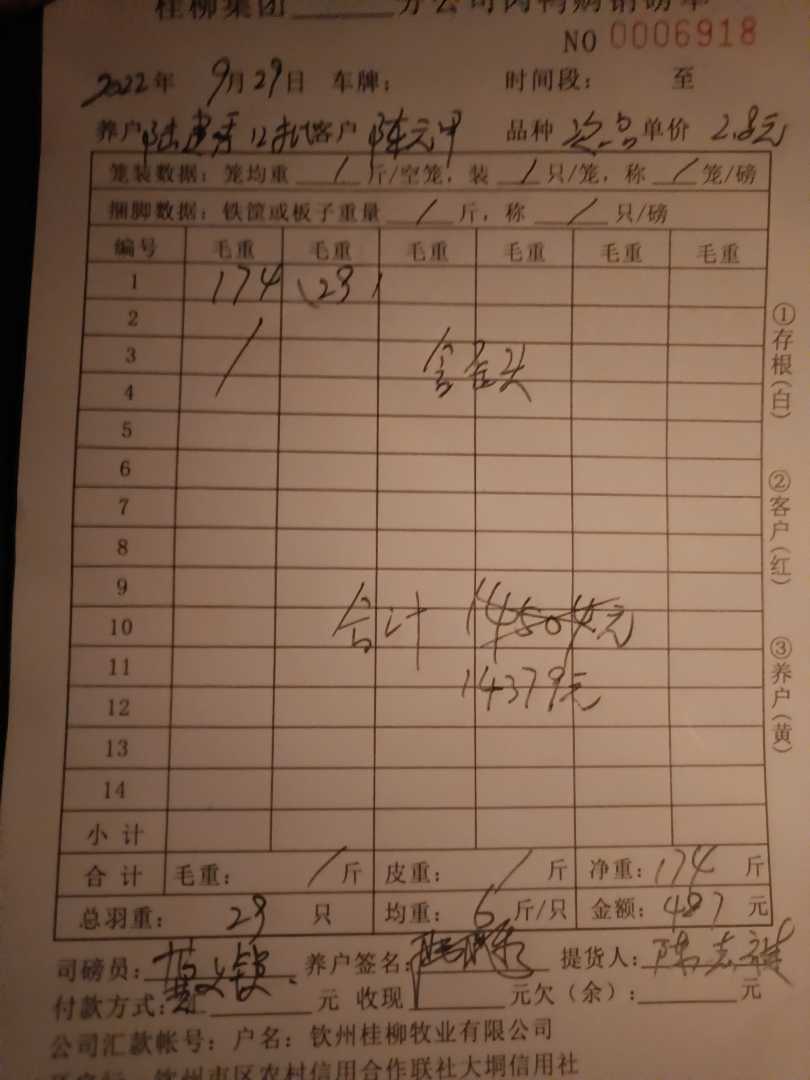 桂柳集团 分公司肉鸭购销磅单
NO 0006918
2022年 9月29日 车牌: 时间段: 至
养户 客户 陈元甲 品种 次品 单价 2.8元
笼装数据: 笼均重 / 斤/空笼, 装 / 只/笼, 称 / 笼/磅
捆脚数据: 铁筐或板子重量 / 斤, 称 / 只/磅
编号 毛重 毛重 毛重 毛重 毛重 毛重
1 174 (23)
2
3 /
4
5
6
7
8
9
10 合计 14504元
11 14379元
12
13
14
小计
合计 毛重: / 斤 皮重: / 斤 净重: 174 斤
总羽重: 29 只 均重: 6 斤/只 金额: 487 元
司磅员: 养户签名: 提货人:
付款方式: 元 收现 元欠(余): 元
公司汇款帐号: 户名: 钦州桂柳牧业有限公司
钦州市区农村信用合作联社大垌信用社
①存根(白)
②客户(红)
③养户(黄)